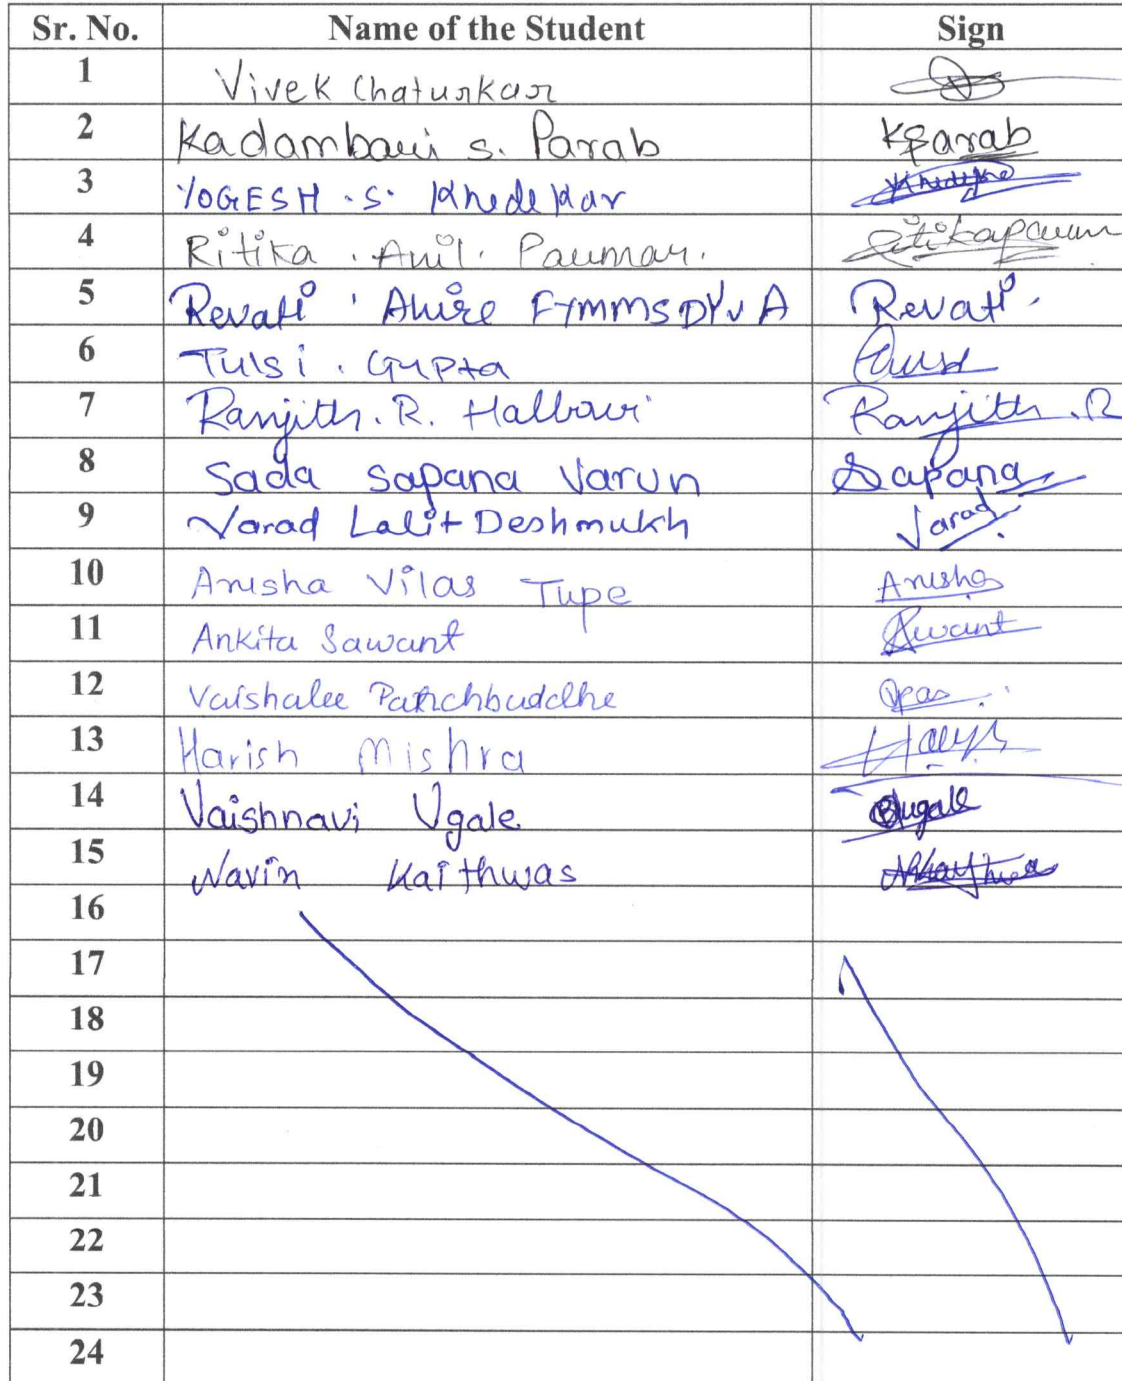 Sr. No. Name of the Student Sign
1 Vivek Chaturkar
2 Kadambari s. Parab KParab
3 YOGESH .S. Khedekar
4 Ritika . Anil. Paumar. Ritikapaumar
5 Revati . Ahire FYMMSDYVA Revati.
6 Tulsi . Gupta
7 Ranjith. R. Halbavi Ranjith .R
8 Sada Sapana Varun Sapana
9 Varad Lalit Deshmukh Varad
10 Anusha Vilas Tupe Anusha
11 Ankita Sawant
12 Vaishalee Panchbuddhe
13 Harish Mishra
14 Vaishnavi Ugale
15 Navin Kaithwas
16
17
18
19
20
21
22
23
24